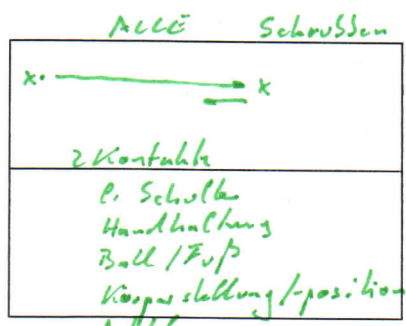 ALLE Schrubben
x. x
2 Kontakte
l. Schulter
Handhaltung
Ball / Fuß
Körperstellung /-position